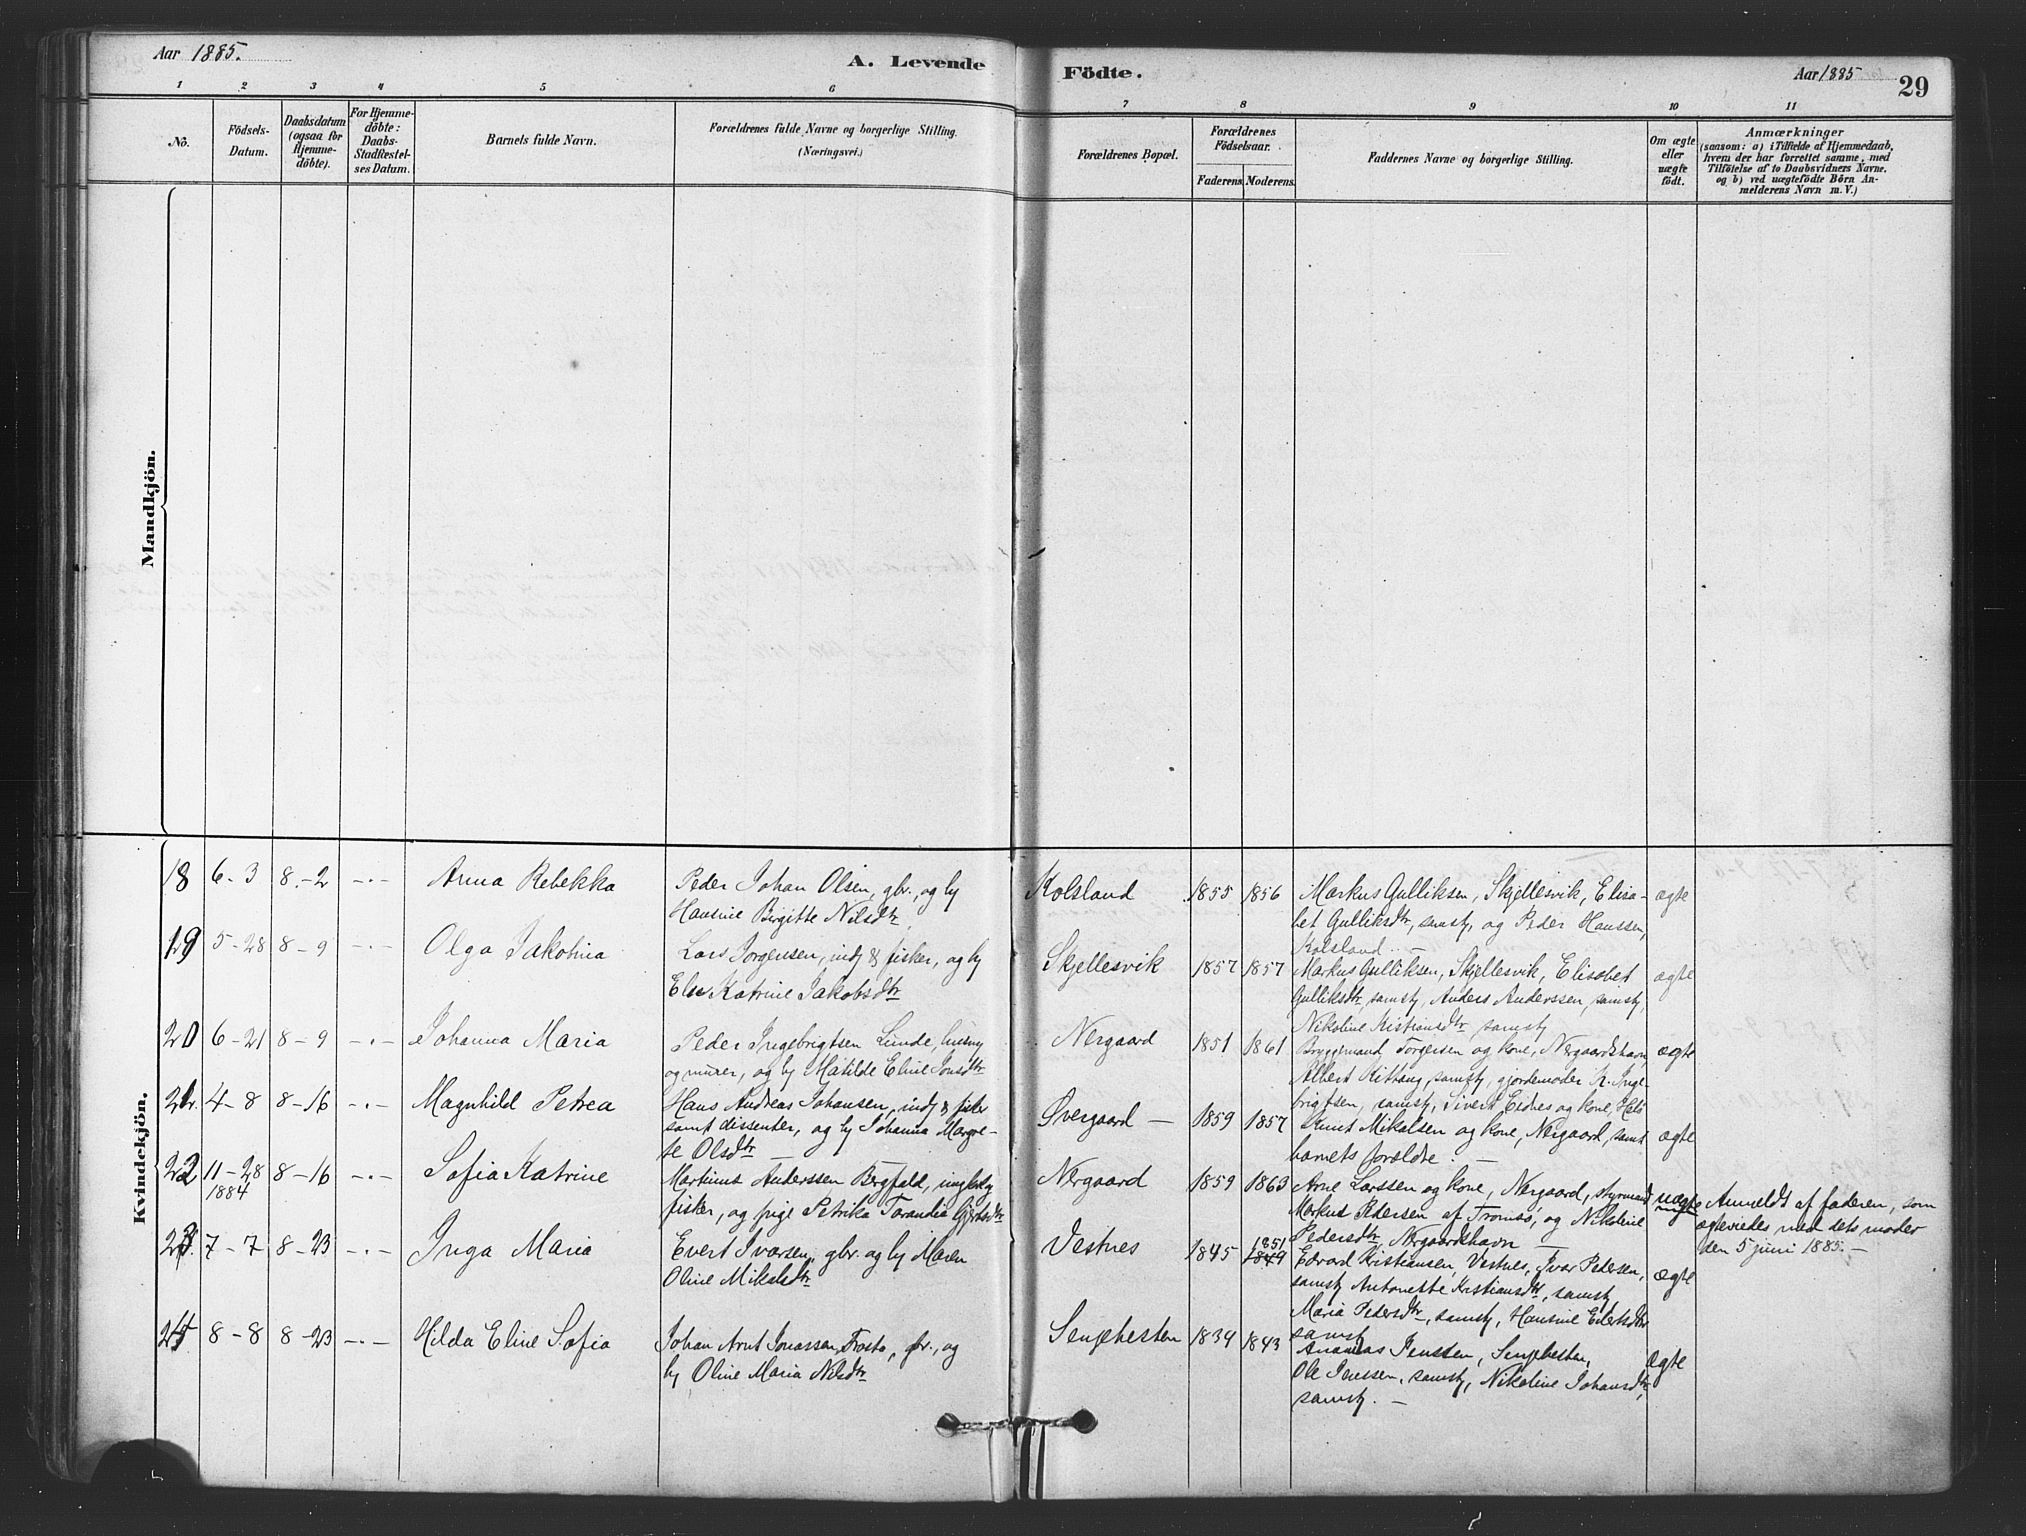 Aar 1885.
A. Levende
Födte.
Aar 1885
29
1 2 3 4 5 6 7 8 9 10 11
No.
Födsels-
Datum.
Daabsdatum
(ogsaa for
Hjemme-
döbte).
For Hjemme-
döbte:
Daabs-
Stadfæstel-
ses Datum.
Barnets fulde Navn.
Forældrenes fulde Navne og borgerlige Stilling.
(Næringsvei.)
Forældrenes Bopæl.
Forældrenes
Födselsaar.
Faderens. Moderens.
Faddernes Navne og borgerlige Stilling.
Om ægte
eller
uægte
födt.
Anmærkninger
(saasom: a) i Tilfælde af Hjemmedaab,
hvem der har forrettet samme, med
Tilföielse af to Daabsvidners Navne.
og b) ved uægtefödte Börn An-
melderens Navn m. V.)
Mandkjön.
Kvindekjön.
18 6-3 8-2 -"- Anna Rebekka
Peder Johan Olsen, gbr., og hy
Hansine Birgitte Nilsdtr.
Kolsland 1855 1856
Markus Gulliksen, Skjellesvik, Elisa-
bet Gulliksdtr, samsty, og Peder Hanssen,
Kolsland. -
ægte
19 5-28 8-9 -"- Olga Jakobina
Lars Jørgensen, indj & fisker, og hy
Else Katrine Jakobsdtr
Skjellesvik 1857 1857
Markus Gulliksen, Skjellesvik, Elisabet
Gulliksdtr, samsty, Anders Anderssen, samsty,
Nikoline Kristiansdtr, samsty
ægte
20 6-21 8-9 -"- Johanna Maria
Peder Ingebrigtsen Lunde, husmg
og murer, og hy Matilde Eline Jonsdtr
Nergaard 1851 1861
Bryggemand Torgersen og kone, Nergaardshavn,
Albert Kittang, samsty, gjordemoder K. Inge-
brigtsen, samsty, Sivert Eidnes og kone,
ægte
21 4-8 8-16 -"- Magnhild Petrea
Hans Andreas Johansen, indj & fisker
samt dissenter, og hy Johanna Margre-
te Olsdtr -
Øvergaard - 1859 1857
Knut Mikalsen og kone, Nergaard, samt
barnets forældre. -
ægte
22 11-28 8-16 -"- Sofia Katrine
1884
Martinus Anderssen Bergfald, ungkarl og
fisker, og pige Petrika Tarandia Gjertsdtr
Nergaard 1859 1863
Arne Larssen og kone, Nergaard, styrmand
Markus Pedersen af Tromsø, og Nikoline
Pedersdtr, Nergaardshavn -
uægte
Anmeldt af faderen, som
ægteviedes med dets moder
den 5 juni 1885. -
23 7-7 8-23 -"- Inga Maria
Evert Ivarsen, gbr. og hy Maren
Oline Mikalsdtr
Vestnes 1845 1851
1849
Edvard Kristiansen, Vestnes, Ivar Pedersen,
samsty Antonette Kristiansdtr, samsty
Maria Pedersdtr, samsty, Hansine Evertsdtr
samsty
ægte
24 8-8 8-23 -"- Hilda Eline Sofia
Johan Arnt Jonassen Trasta, gbr., og
hy Oline Maria Nilsdtr
Senjehesten 1834 1843
Ananias Jenssen, Senjehesten,
Ole Jenssen, samsty, Nikoline Johansdtr,
samsty. -
Ægte